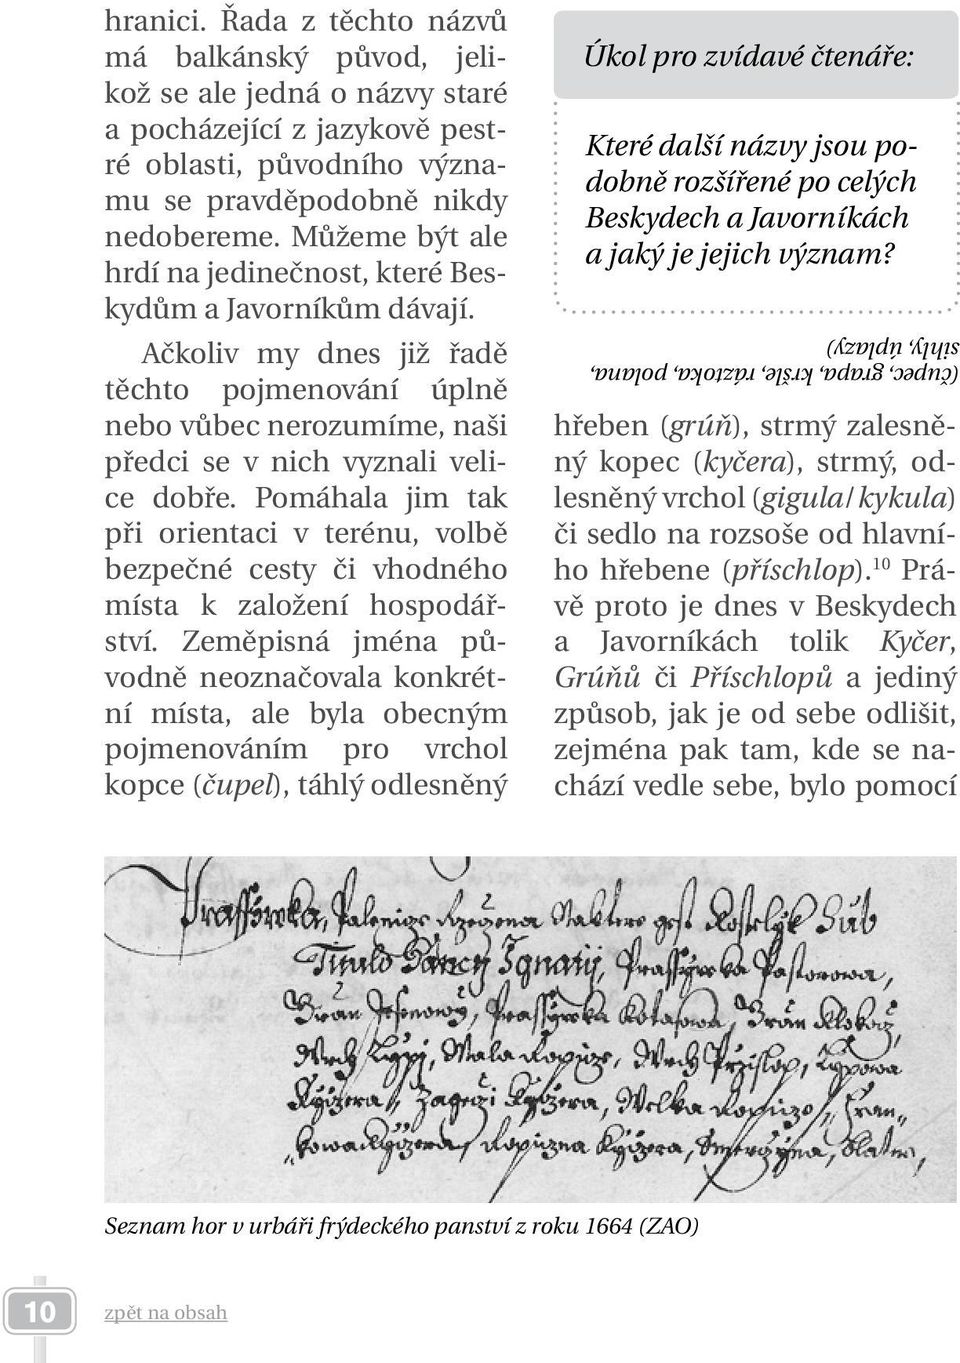 hranici. Řada z těchto názvů
má balkánský původ, jeli-
kož se ale jedná o názvy staré
a pocházející z jazykově pest-
ré oblasti, původního význa-
mu se pravděpodobně nikdy
nedobereme. Můžeme být ale
hrdí na jedinečnost, které Bes-
kydům a Javorníkům dávají.
Ačkoliv my dnes již řadě
těchto pojmenování úplně
nebo vůbec nerozumíme, naši
předci se v nich vyznali veli-
ce dobře. Pomáhala jim tak
při orientaci v terénu, volbě
bezpečné cesty či vhodného
místa k založení hospodář-
ství. Zeměpisná jména pů-
vodně neoznačovala konkrét-
ní místa, ale byla obecným
pojmenováním pro vrchol
kopce (čupel), táhlý odlesněný
Úkol pro zvídavé čtenáře:
Které další názvy jsou po-
dobně rozšířené po celých
Beskydech a Javorníkách
a jaký je jejich význam?
(čupec, grapa, kršle, ráztoka, polana,
sihly, úplazy)
hřeben (grúň), strmý zalesně-
ný kopec (kyčera), strmý, od-
lesněný vrchol (gigula/kykula)
či sedlo na rozsoše od hlavní-
ho hřebene (příschlop).10 Prá-
vě proto je dnes v Beskydech
a Javorníkách tolik Kyčer,
Grúňů či Příschlopů a jediný
způsob, jak je od sebe odlišit,
zejména pak tam, kde se na-
chází vedle sebe, bylo pomocí
Seznam hor v urbáři frýdeckého panství z roku 1664 (ZAO)
10
zpět na obsah